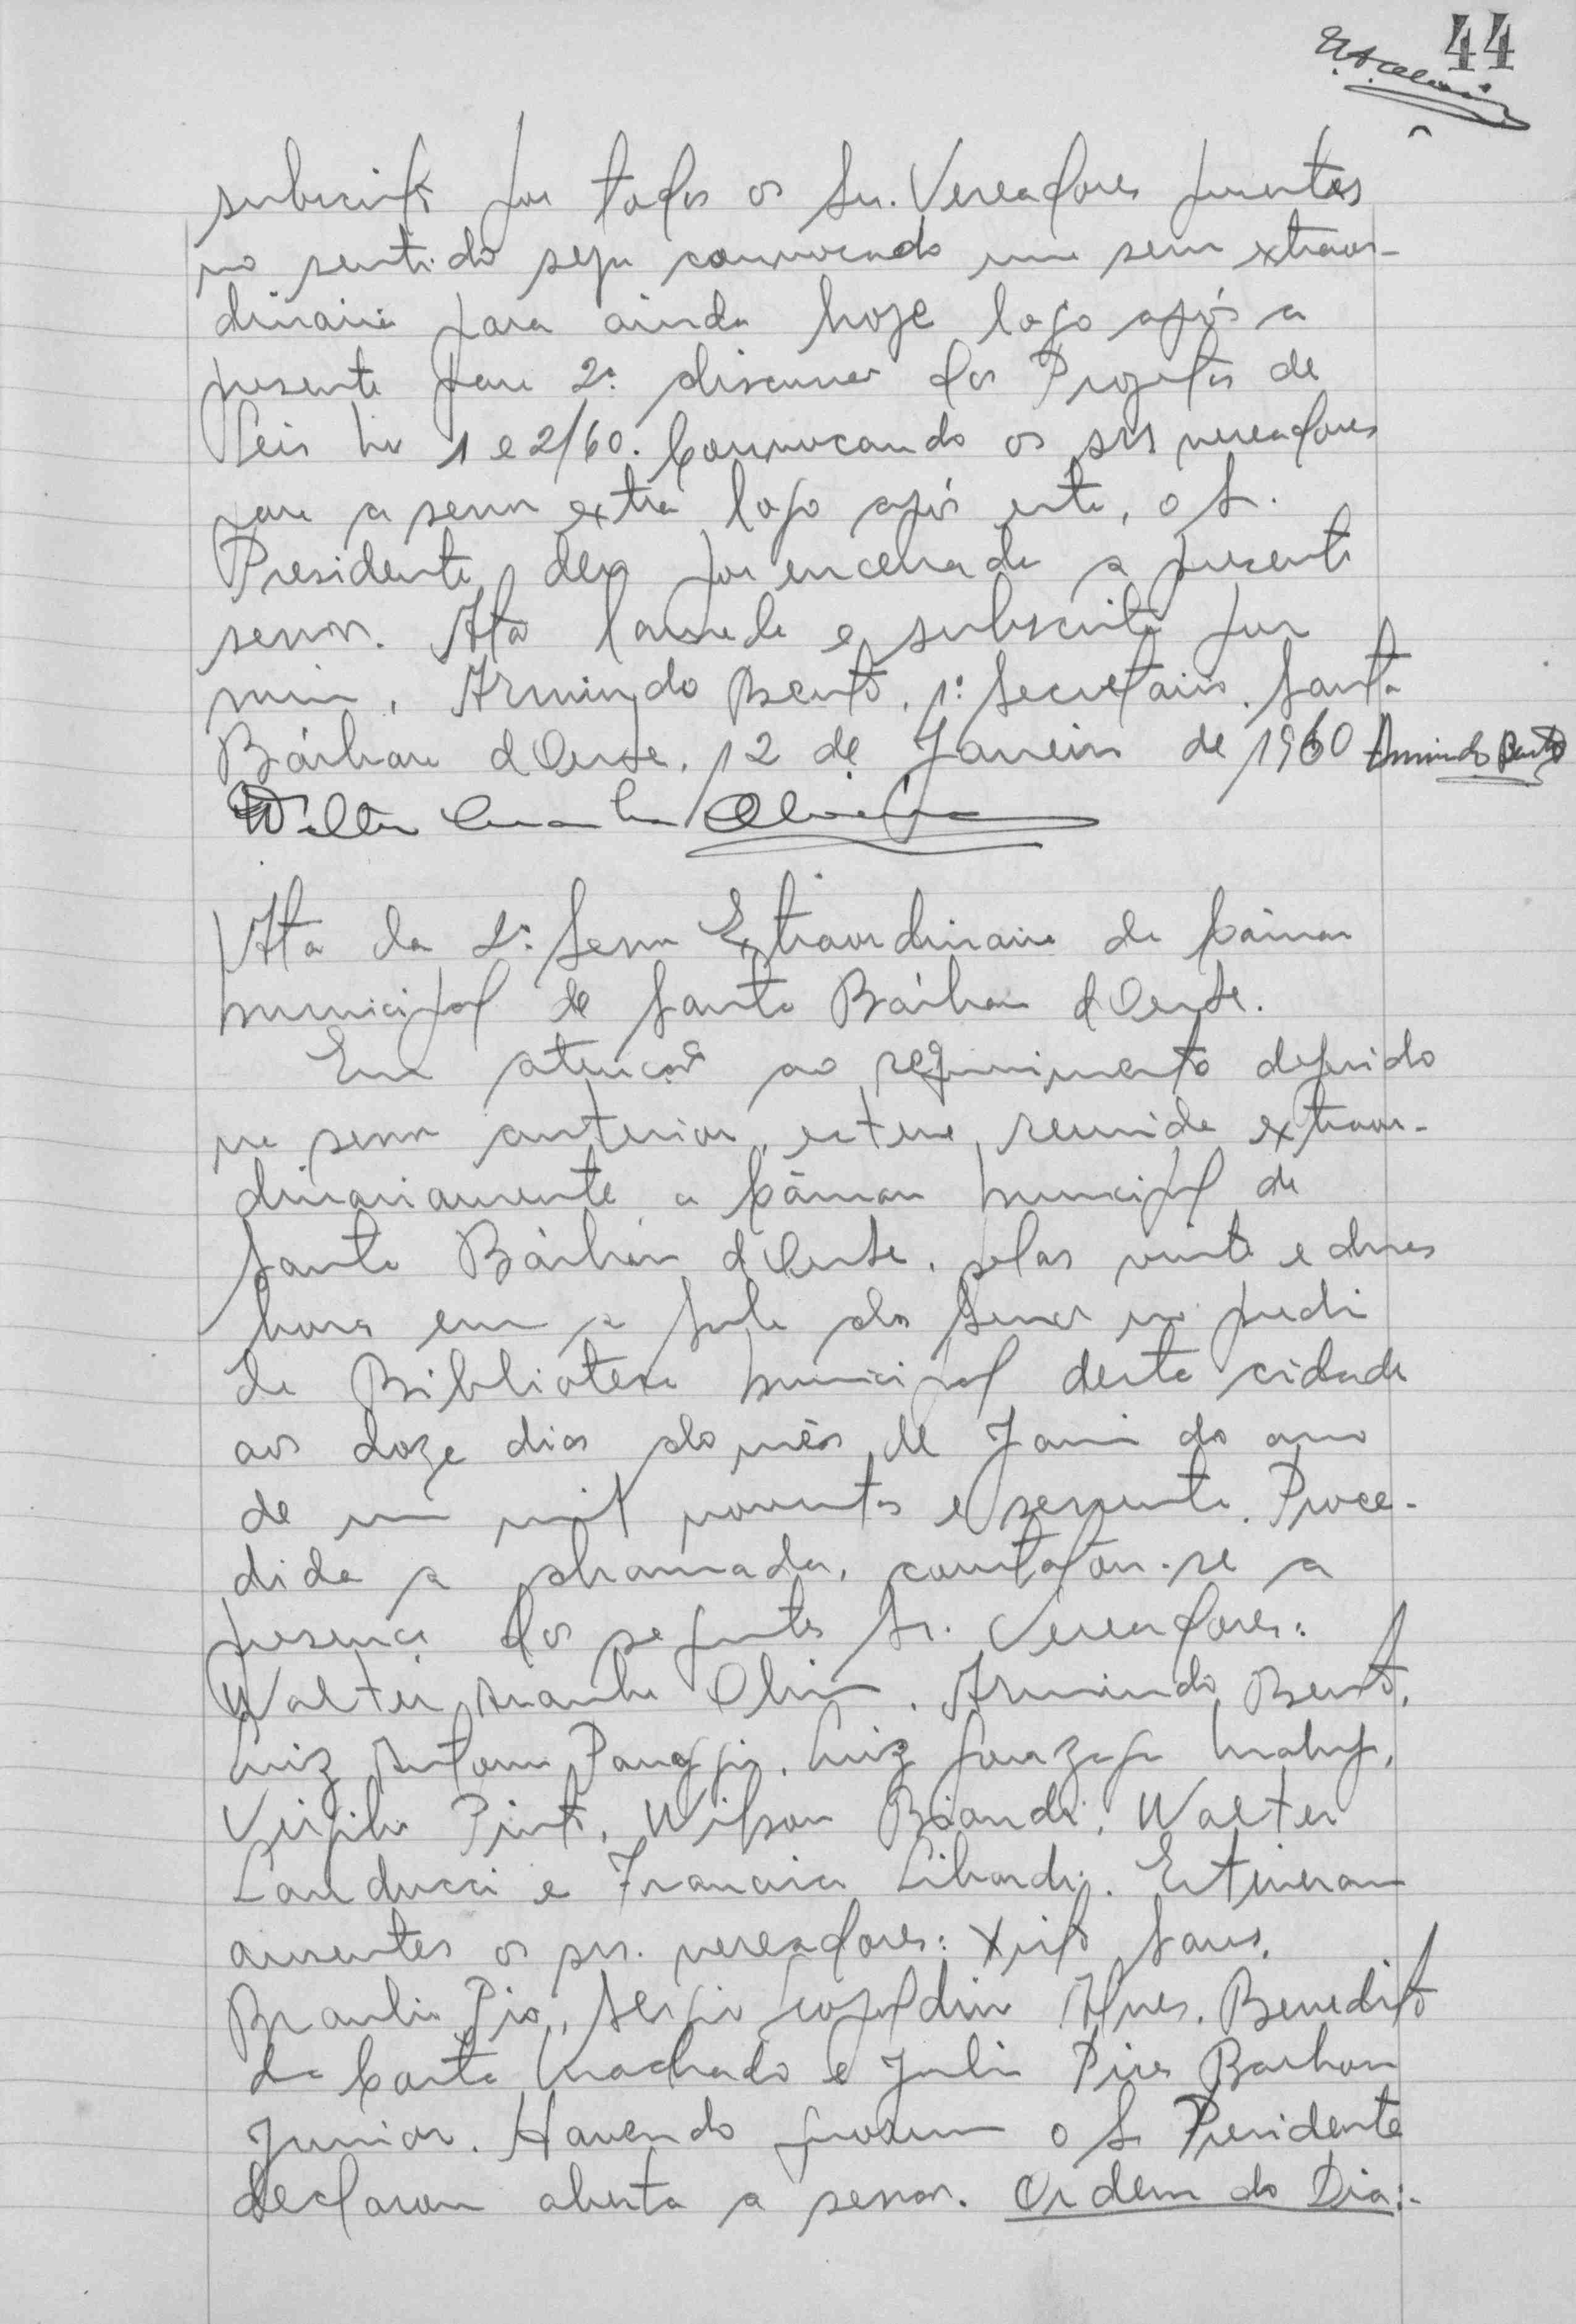 44
subscrito por todos os Srs. Vereadores presentes
no sentido seja convocado uma sessão extraor-
dinaria para ainda hoje logo após a
presente para 2ª discussão dos Projetos de
Leis nº 1 e 2/60. Convocando os srs vereadores
para a sessão extra logo após esta, o Sr.
Presidente deu por encerrada a presente
sessão. Ata lavrada e subscrita por
mim, Armindo Bento, 1º Secretario. Santa
Bárbara d'Oeste, 12 de Janeiro de 1960 Armindo Bento
Walter Oliveira
Ata da 2ª Sessão Extraordinaria da Câmara
Municipal de Santa Bárbara d'Oeste.
Em atenção ao requerimento deferido
na sessão anterior, esteve reunida extraor-
dinariamente a Câmara Municipal de
Santa Bárbara d'Oeste, pelas vinte e duas
horas em a Sala das Sessões no predio
da Biblioteca Municipal desta cidade
aos doze dias do mês de Janeiro do ano
de um mil novecentos e sessenta. Proce-
dida a chamada, constatou-se a
presença dos seguintes Srs. Vereadores:
Walter Aranha Oliveira, Armindo Bento,
Luiz Antonio Panaggio, Luiz Gonzaga
Virgilio Pinto, Wilson Biandi, Walter
Landucci e Francisco Libardi. Estiveram
ausentes os srs. vereadores: Xisto
Braulio Pio, Sergio Leopoldino Alves, Benedito
da Costa Machado e Julio Pires Barbosa
Junior. Havendo quorum o Sr Presidente
declarou aberta a sessão. Ordem do Dia:-